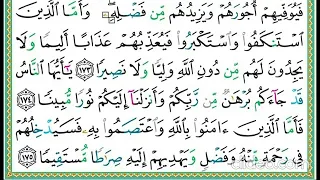 فَيُوَفِّيهِمْ أُجُورَهُمْ وَيَزِيدُهُم مِّن فَضْلِهِۦ ۖ وَأَمَّا ٱلَّذِينَ
ٱسْتَنكَفُوا۟ وَٱسْتَكْبَرُوا۟ فَيُعَذِّبُهُمْ عَذَابًا أَلِيمًا وَلَا
يَجِدُونَ لَهُم مِّن دُونِ ٱللَّهِ وَلِيًّا وَلَا نَصِيرًا ١٧٣ يَٰٓأَيُّهَا ٱلنَّاسُ
قَدْ جَآءَكُم بُرْهَٰنٌ مِّن رَّبِّكُمْ وَأَنزَلْنَآ إِلَيْكُمْ نُورًا مُّبِينًا ١٧٤
فَأَمَّا ٱلَّذِينَ ءَامَنُوا۟ بِٱللَّهِ وَٱعْتَصَمُوا۟ بِهِۦ فَسَيُدْخِلُهُمْ
فِى رَحْمَةٍ مِّنْهُ وَفَضْلٍ وَيَهْدِيهِمْ إِلَيْهِ صِرَٰطًا مُّسْتَقِيمًا ١٧٥